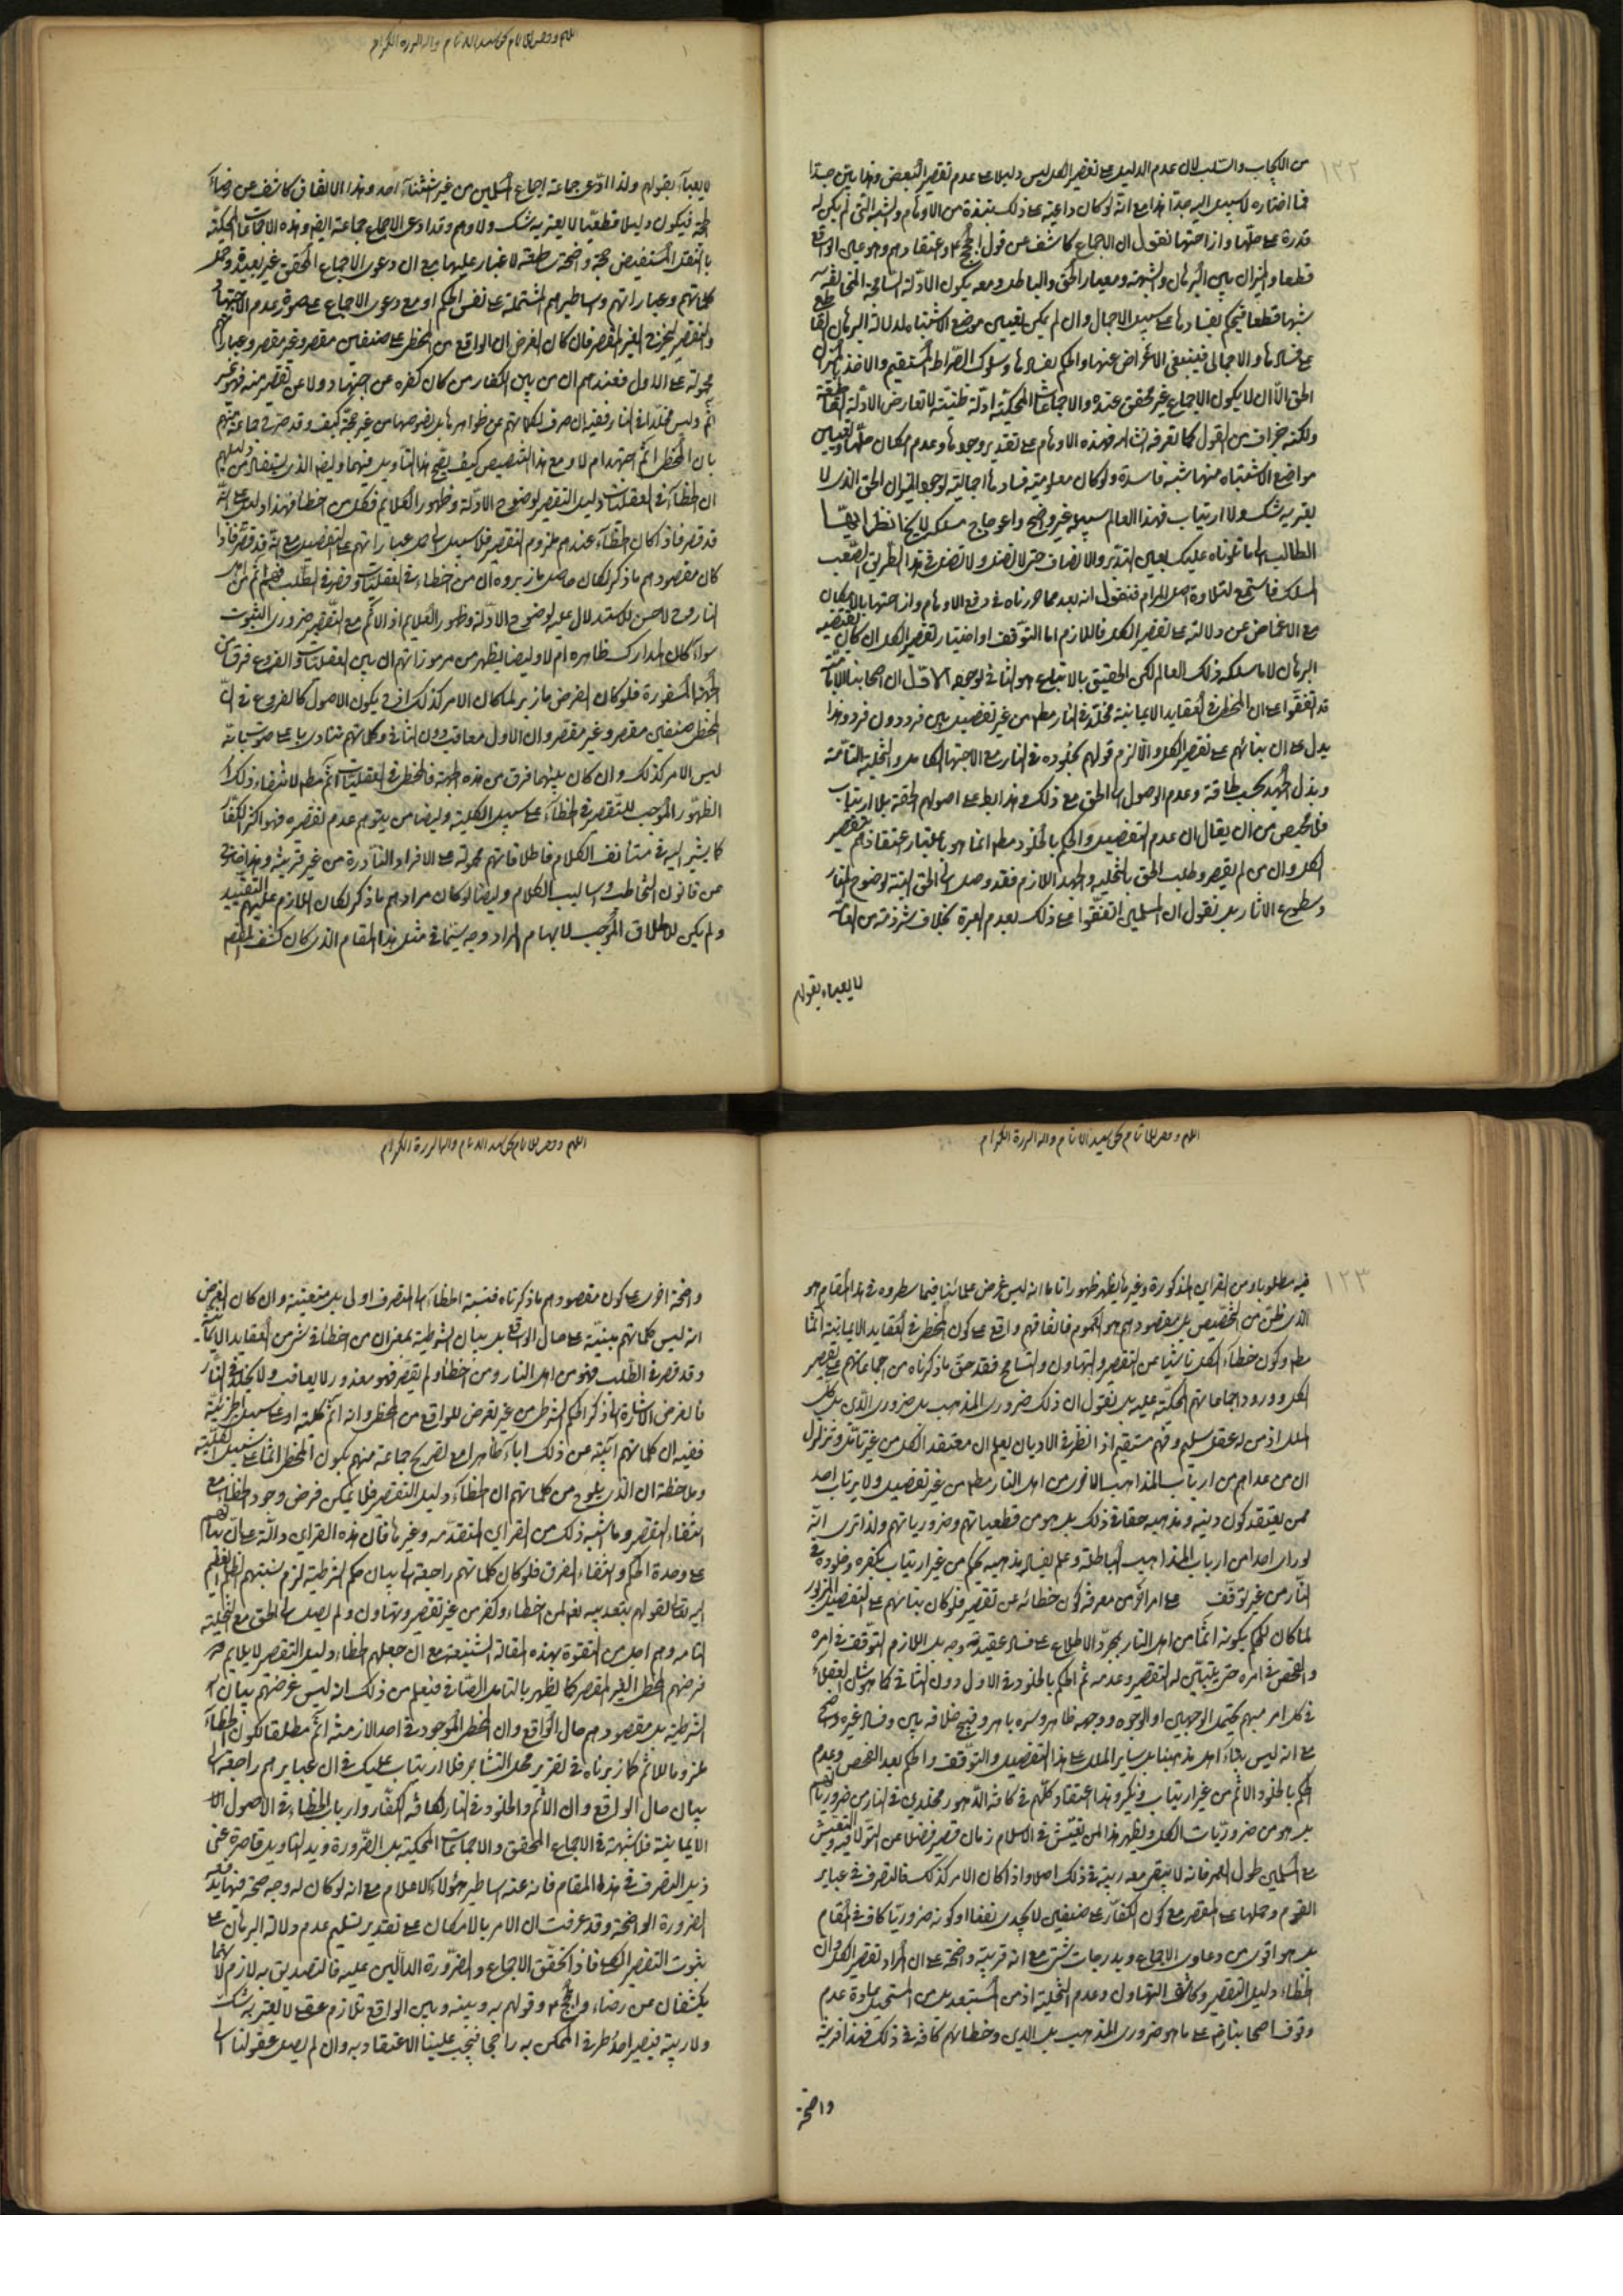 ١٢٢
من الايجاب والسلب لان عدم الدليل على تقصير الكل ليس دليلا على عدم تقصير البعض وهذا بين جدا
فما اختاره لا سبيل اليه جدا هذا مع انه لو كان داعيته على ذلك نبذة من الاوهام والشبه التي لم يكن له
قدرة على حلها وازاحتها نقول ان الاجماع كاشف عن قول الحجج ع واعتقادهم وهو عين الواقع
قطعا والميزان بين البرهان والشبهة ومعيار الحق والباطل ومعه يكون الادلة السانحة المخالفة
شبها قطعا فيحكم بفسادها على سبيل الاجمال وان لم يكن تعيين موضع الاشتباه لدلالة البرهان القاطع
على فسادها ولو اجمالا فينبغي الاغماض عنها والحكم بفسادها وسلوك الصراط المستقيم والاخذ بالميزان
الحق الا ان لا يكون الاجماع غير محقق عنده والاجماعات المحكية ادلة ظنية لا تعارض الادلة القاطعة
ولكنه جزاف من القول كما تعرفه انشاء الله فهذه الاوهام على تقدير وجودها وعدم امكان حلها وتعيين
مواضع الاشتباه منها شبه فاسدة ولو كان معلومية فسادها اجمالية لوجود الميزان الحق الذي لا
يعتريه شك ولا ارتياب فهذا العالم سبيله غير واضح واعوجاج مسلكه لايح فانظر ايها
الطالب الى ما تلوناه عليك بعين التدبر والانصاف حتى لا تضل ولا تضل في هذا الطريق الصعب
المسلك فاستمع لتلاوة اصل المرام فنقول انه بعد ما حررناه في دفع الاوهام وازاحتها بالامكان
مع الاغماض عن دلالته على تقصير الكل فاللازم اما التوقف او اختيار تقصير الكل ان كان يقتضيه
البرهان لا ما سلكه ذلك العالم لكن الحقيق بالاتباع هو الثاني لوجوه الاول ان اصحابنا الامامية
قد اتفقوا على ان المخطئ في العقايد الايمانية مخلد في النار مط من غير تفصيل بين فرد دون فرد وهذا
يدل على ان بنائهم على تقصير الكل والا لزم قولهم بخلوده في النار مع الاجتهاد الكامل والتخلية التامة
وبذل الجهد بحسب طاقته وعدم الوصول الى الحق مع ذلك وهذا باطل على اصولهم الحقة بلا ارتياب
فلا محيص من ان يقال ان عدم التفصيل والحكم بالخلود مط انما هو باعتبار اعتقادهم تقصير
الكل وان من لم يقصر وطلب الحق بالتخلية والجهد اللازم فقد وصل الى الحق البتة لوضوح المنار
وسطوع الاثار بل نقول ان المسلمين اتفقوا على ذلك لعدم العبرة بخلاف شرذمة من العامة
لا يعباء بقولهم
لا يعباء بقولهم ولذا ادعى جماعة اجماع المسلمين من غير استثناء احد وهذا الاتفاق كاشف عن رضاء
الحجة فيكون دليلا قطعيا لا يعتريه شك ولا وهم وقد ادعى الاجماع جماعة ايضا وهذه الاجماعات المحكية
بالنقل المستفيض حجة واضحة ساطعة لا غبار عليها مع ان دعوى الاجماع المحقق غير بعيد وحمل
كلماتهم وعباراتهم واساطيرهم المشتملة على نفس الحكم او مع دعوى الاجماع على صورة عدم الاجتهاد
والتقصير ليخرج الغير المقصر فان كان الغرض ان الواقع من المخطئ على صنفين مقصر وغير مقصر وعباراتهم
محمولة على الاول فعندهم ان من بين الكفار من كان كفره عن اجتهاد ولا عن تقصير منه فهو غير
آثم وليس مخلدا في النار ففيه ان صرف كلماتهم عن ظواهرها بل نصوصها من غير حجة كيف وقد صرح جماعة منهم
بان المخطئ آثم اجتهد ام لا ومع هذا التنصيص كيف يصح هذا التاويل فيهما وايضا الذي يستفاد من دليلهم
ان الخطاء في العقليات دليل التقصير لوضوح الادلة وظهور الكلام فكل من خطأ فهذا دليل على انه
قد قصر فاذا كان الخطاء عندهم ملزوم التقصير فلا سبيل الى حمل عباراتهم على التفصيل مع انه قد قصر فاذا
كان مقصودهم ما ذكر لكان حاصل ما زبروه ان من خطاء في العقليات وقصر في الطلب فهو آثم من اهل
النار وح لا حسن للاستدلال عليه لوضوح الادلة وظهور الكلام اذ الاثم مع التقصير ضروري الثبوت
سواء كان المدارك ظاهرة ام لا وايضا يظهر من مرموزاتهم ان بين العقليات والفروع فرقا من
الجهة المسفورة فلو كان الغرض ما زبر لما كان الامر كذلك اذ ح يكون الاصول كالفروع في ان
المخطئ صنفين مقصر وغير مقصر وان الاول معاقب دون الثاني وكلماتهم تنادي باعلى صوتها بانه
ليس الامر كذلك وان كان بينهما فرق من هذه الجهة فالمخطئ في العقليات آثم مطلقا لانتفاء ذلك
الظهور الموجب للتقصير في الخطاء على سبيل الكلية وايضا من يتوهم عدم تقصيره فهو اكثر الكفار
كما يشير اليه في مستانف الكلام فاطلاقاتهم محمولة على الافراد النادرة من غير قرينة وهذا خروج
عن قانون التخاطب واساليب الكلام وايضا لو كان مرادهم ما ذكر لكان اللازم عليهم التقييد
ولم يكن للاطلاق الموجب لابهام المراد وجه سيما في مثل هذا المقام الذي كان كشف المقصود
١٢٣
فيه مطلوبا ومن القراين المذكورة وغيرها يظهر ظهورا تاما انه ليس غرض علمائنا فيما سطروه في هذا المقام هو
الذي ظن من التخصيص بل مقصودهم هو العموم فاتفاقهم واقع على كون المخطئ في العقايد الايمانية آثما
مط وكون خطاء الكل ناشيا من التقصير والتهاون والتسامح فقد حق ما ذكرناه من اجماعهم على تقصير
الكل وورود اجماعاتهم المحكية عليه بل نقول ان ذلك ضروري المذهب بل ضروري الدين بل كل
الملل اذ من له عقل سليم وفهم مستقيم اذا نظر في الاديان يعلم ان معتقد الكل من غير تامل وتزلزل
ان من عداهم من ارباب المذاهب الاخرى من اهل النار مط من غير تفصيل ولا يرتاب احد
ممن يعتقد كون دينه ومذهبه حقا في ذلك بل هو من قطعياتهم وضرورياتهم ولذا ترى انه
لو راى احدا من ارباب المذاهب الباطلة وعلم بفساد مذهبه يحكم من غير ارتياب بكفره وخلوده في
النار من غير توقف على امر آخر من معرفة كون خطائه عن تقصير فلو كان بنائهم على التفصيل المزبور
لما كان للحكم بكونه آثما من اهل النار بمجرد الاطلاع على فساد عقيدته وجه بل اللازم التوقف في امره
والفحص في امره حتى يتبين له التقصير وعدمه ثم الحكم بالخلود في الاول دون الثاني كما هو شان العقلاء
في كل امر مبهم يحتمل الوجهين او الوجوه ووجهه ظاهر وسره باهر وقبح خلافه بين وفساد غيره واضح
على انه ليس بناء اهل مذهبنا بل ساير الملل على هذا التفصيل والتوقف والحكم بعد الفحص وعدم
الحكم بالخلود والاثم من غير ارتياب ونكير وهذا اعتقاد كلهم في كافة الدهور مخلدين في النار من ضرورياتهم
بل هو من ضروريات الكل ويظهر هذا لمن تعيش في الاسلام زمان قصير فضلا عن التولد فيه والتعيش
على المسلمين طول العمر فانه لا يبقى معه ريبة في ذلك اصلا واذا كان الامر كذلك فالتصرف في عباير
القوم وحملها على المقصر مع كون الكفار على صنفين لا يجدي نفعا اذ كونه ضروريا كاف في المقام
بل هو اقوى من دعاوى الاجماع وبدرجات شتى مع انه قرينة واضحة على ان المراد تقصير الكل وان
الخطاء دليل التقصير وكاشف التهاون وعدم التخلية اذ من المستبعد بل من المستحيل عادة عدم
وقوف اصحابنا رض على ما هو ضروري المذهب بل الدين وخطائهم كافة في ذلك فهذا قرينة
واضحة
واضحة اخرى على كون مقصودهم ما ذكرناه فنسبة الخطاء الى المتصرف اولى بل متعينة وان كان الغرض
انه ليس كلماتهم مبنية على حال الواقع بل بيان الشرطية بمعنى ان من اخطأ في شئ من العقايد الايمانية
وقد قصر في الطلب فهو من اهل النار ومن اخطأ ولم يقصر فهو معذور لا يعاقب ولا يخلد في النار
فالغرض الاشارة الى ذكر الحكم الشرطي من غير تعرض للواقع من المخطئ وانه آثم كلية او على سبيل الجزئية
ففيه ان كلماتهم آبية عن ذلك اباء ظاهرا مع تصريح جماعة منهم بكون المخطئ آثما على سبيل الكلية
وملاحظة ان الذي يلوح من كلماتهم ان الخطاء دليل التقصير فلا يمكن فرض وجود الخطاء مع
انتفاء التقصير وما اشبه ذلك من القراين المتقدمة وغيرها فان هذه القراين دالة على ان بنائهم
على وحدة الحكم وانتفاء الفرق فلو كان كلماتهم راجعة الى بيان حكم الشرطية لزم نسبتهم الظلم العظيم
اليه تعالى لقولهم بتعذيبه تعالى من اخطاء وكفر من غير تقصير وتهاون ولم يصل الى الحق مع التخلية
التامة وهم اجل من التفوه بهذه المقالة الشنيعة مع ان جعلهم الخطاء دليل التقصير لا يلايم
فرضهم المخطئ الغير المقصر كما يظهر بالتامل الصادق فيعلم من ذلك انه ليس غرضهم بيان
الشرطية بل مقصودهم حال الواقع وان المخطئ الموجود في احد الازمنة آثم مطلقا لكون الخطاء
ملزوما للاثم كما زبرناه في تقرير محل التشاجر فلا ارتياب عليك في ان عبايرهم راجعة الى
بيان حال الواقع وان الاثم والخلود في النار لكافة الكفار وارباب الخطاء في الاصول
الايمانية فلا شبهة في الاجماع المحقق والاجماعات المحكية بل الضرورة ويد التاويل قاصرة عن
ذيل التصرف في هذا المقام فانه عنه اساطير هؤلاء الاعلام مع انه لو كان له وجه صحة فيها
الضرورة الواضحة وقد عرفت ان الامر بالامكان على تقدير تسليم عدم دلالة البرهان على
ثبوت التقصير الكلي فاذا تحقق الاجماع والضرورة الدالين عليه فالتصديق به لازم لانهما
يكشفان عن رضاء الحجج ع وقولهم به وبينه وبين الواقع تلازم عقلي لا يعتريه شك
ولا ريبة فيصير احد طرفي الممكن به راجحا فيجب علينا الاعتقاد به وان لم يصل عقولنا الى